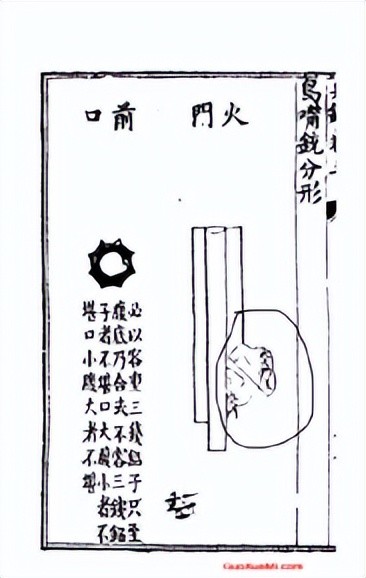 鳥嘴銃分形
火門
前口
必以容重三錢鉛子只至
腹底乃合夫不容三錢鉛
子者不堪口大腹小者不
堪口小腹大者不堪
GuoXueMi.com